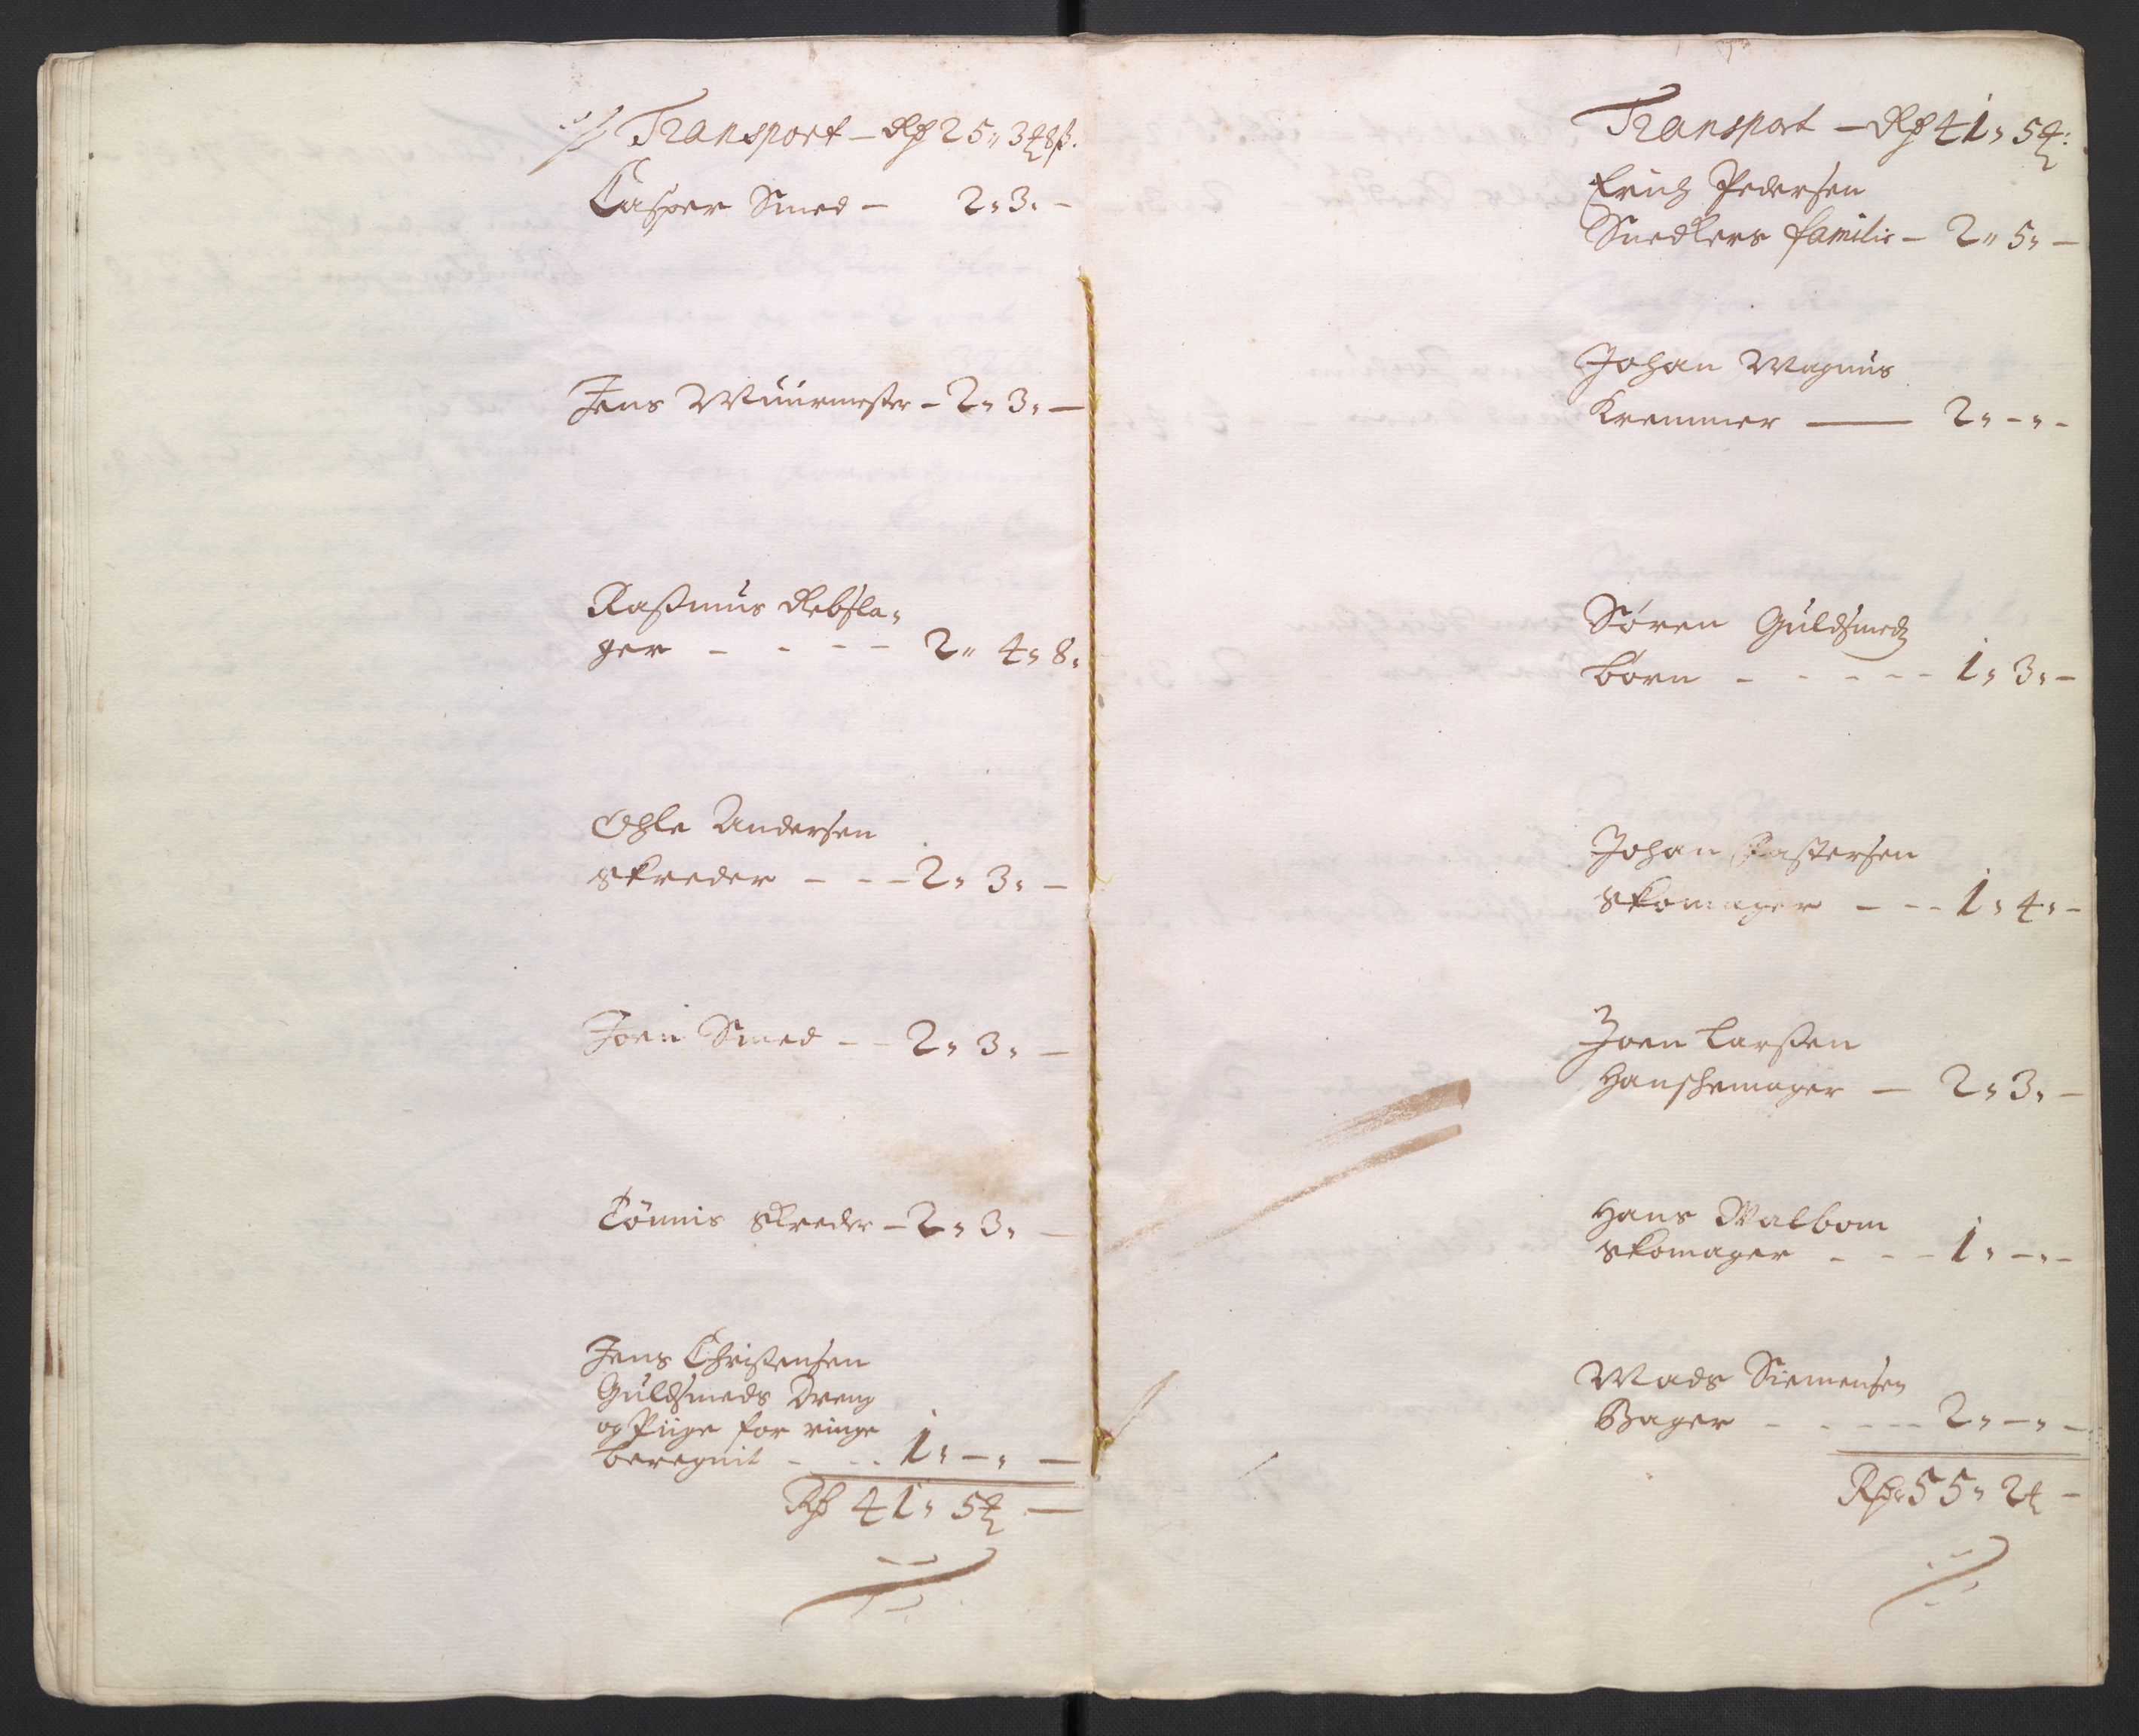 Transport – Rd 25„ 3 ₰ 8 ß.
Casper Smed – 2„ 3. –
Jens Muurmester – 2„ 3„ –
Rasmus Rebsla„
ger – – – – 2„ 4„ 8.
Ohle Andersen
skreder – – – 2„ 3„ –
Joen Smed – – 2„ 3„ –
Tönnis skreder – 2„ 3„ –
Jens Christensen
Guldsmeds Dreng
og Piige for ringe
beregnit – – – 1„ – „ –
Rd 41„ 5 ₰ –
Transport – Rd 41„ 5 ₰:
Erich Pedersen
Snedkers familie – 2„ 5„ –
Johan Magnus
Kremmer — 2„ – „ –
Søren Guldsmedz
börn – – – – – 1„ 3„ –
Johan
skomager – – – 1„ 4„ –
Joen Larssen
Hanskemager – 2„ 3„ –
Hans Malbom
skomager – – – 1„ – „ –
Mads Siemensen
Bager – – – – – 2„ – „ –
Rdr 55„ 2 ₰ –